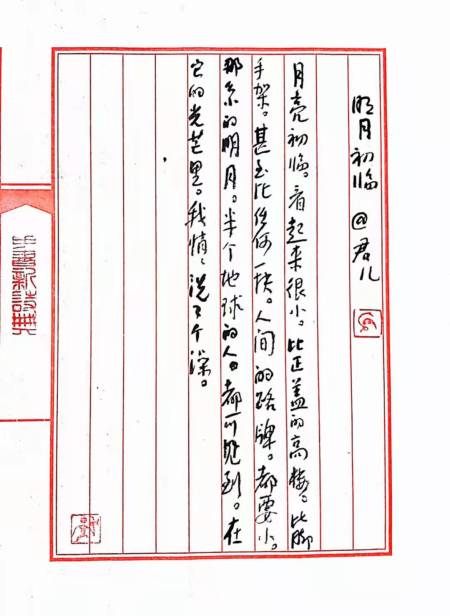 明月初临 @君儿
月亮初临。看起来很小。比正盖的高楼。比脚
手架。甚至比任何一块。人间的路牌。都要小。
那条的明月。半个地球的人。都可见到。在
它的光芒里。我悄悄洗了个澡。